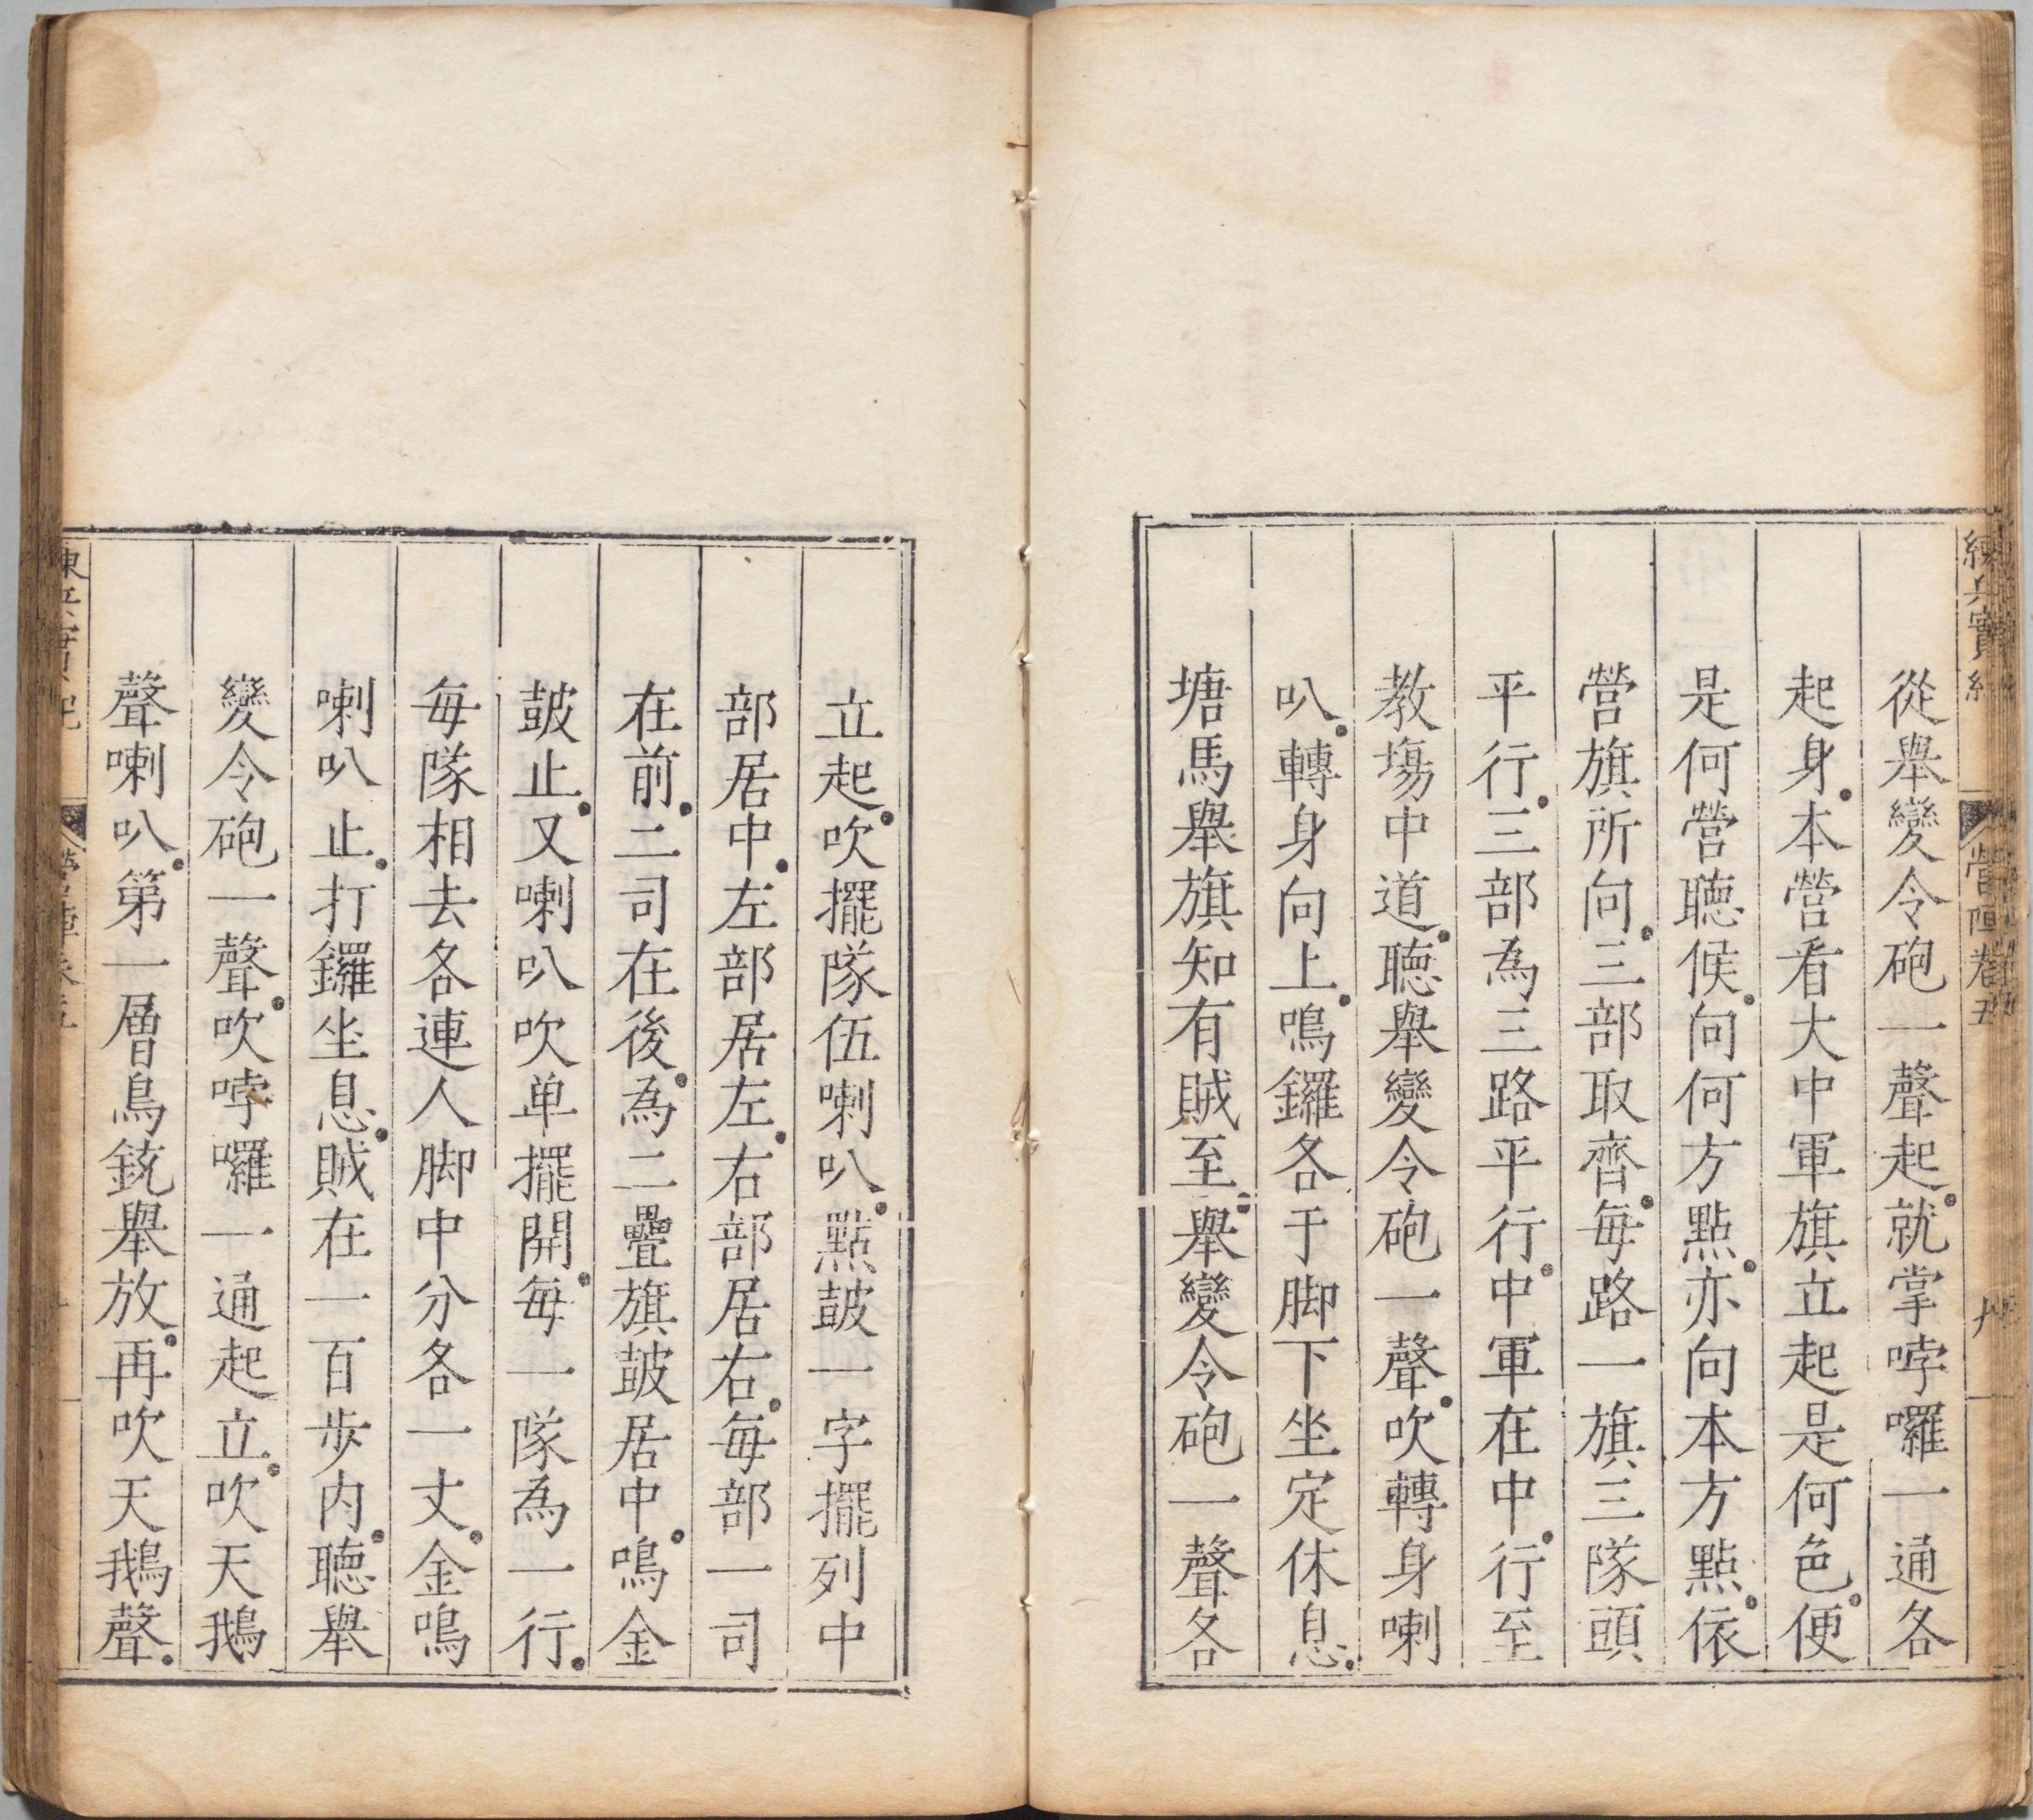 練兵實紀 營陣卷五
從舉變令砲一聲起。就掌哱囉一通各
起身。本營看大中軍旗立起是何色。便
是何營聽候。向何方點。亦向本方點。依
營旗所向。三部取齊。每路一旗三隊頭
平行。三部為三路平行。中軍在中。行至
教塲中道。聽舉變令砲一聲。吹轉身喇
叭。轉身向上。鳴鑼各于脚下坐定休息。
塘馬舉旗知有賊至。舉變令砲一聲各
立起。吹擺隊伍喇叭。點皷一字擺列中
部居中。左部居左。右部居右。每部一司
在前。二司在後。為二疊旗皷居中。鳴金
皷止。又喇叭吹单擺開。每一隊為一行。
每隊相去各連人脚中分各一丈。金鳴
喇叭止。打鑼坐息。賊在一百歩内。聽舉
變令砲一聲。吹哱囉一通起立。吹天鵝
聲喇叭。第一層鳥銃舉放。再吹天鵝聲。